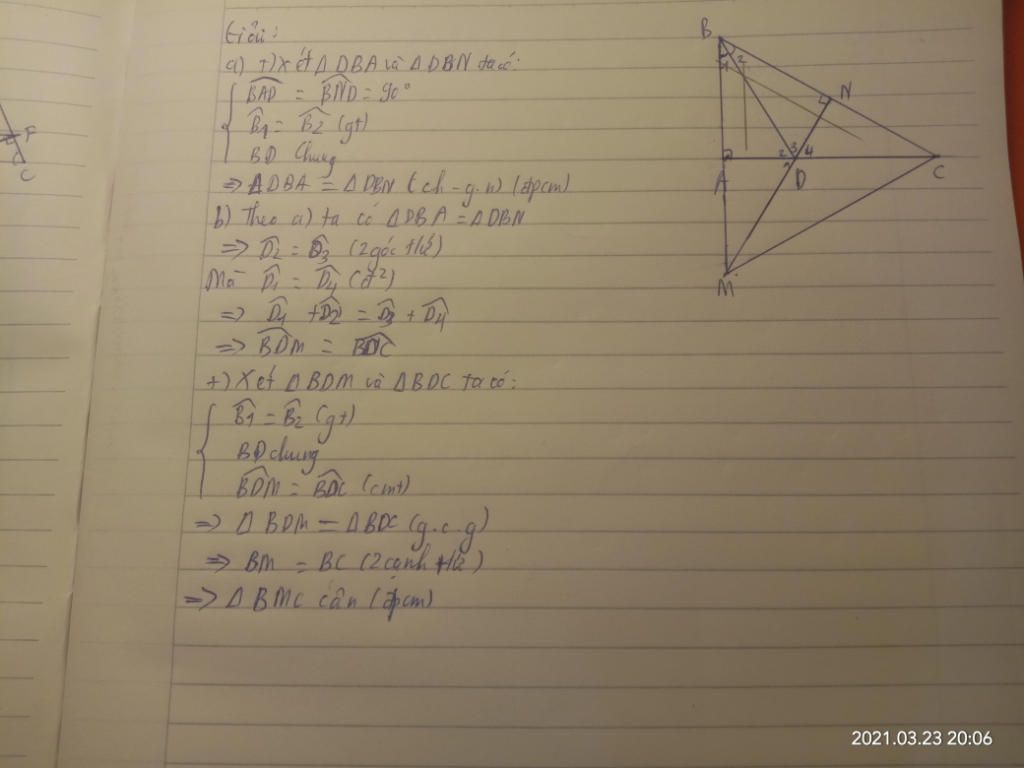 Giải:
a) +) Xét Δ DBA và Δ DBN ta có:
BAD = BND = 90°
B1 = B2 (gt)
BD Chung
=> ΔDBA = ΔDBN (ch - g.n) (đpcm)
b) Theo a) ta có Δ DBA = ΔDBN
=> D2 = D3 (2 góc tứ)
Mà D1 = D4 (đ²)
=> D1 + D2 = D3 + D4
=> BDM = BDC
+) Xét ΔBDM và ΔBDC ta có:
B1 = B2 (gt)
BD chung
BDM = BDC (cmt)
=> Δ BDM = ΔBDC (g.c.g)
=> BM = BC (2 cạnh tứ)
=> Δ BMC cân (đpcm)
B
1 2
N
2 3 4
A
D
C
M
F
C
2021.03.23 20:06